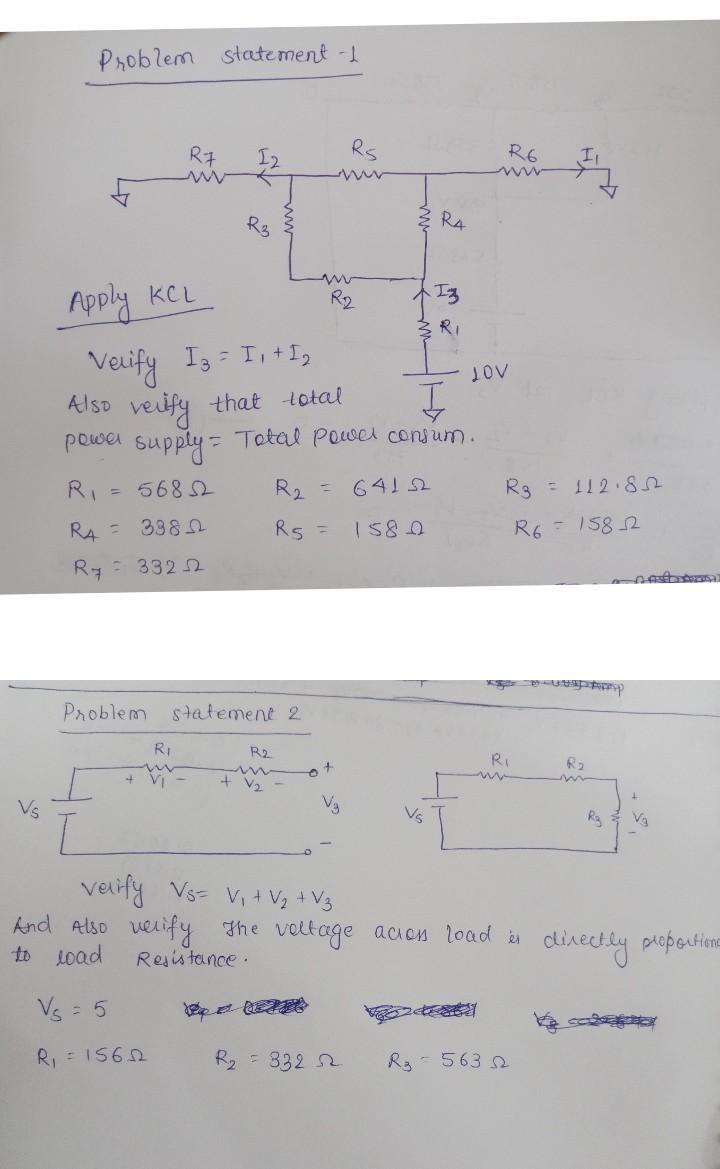 Problem statement-1
R7 I2 R5 R6 I1
R3 R4
R2 I3
Apply KCL R1
Verify I3 = I1 + I2 10V
Also verify that total
power supply = Total Power consum.
R1 = 568Ω R2 = 641Ω R3 = 112.8Ω
R4 = 338Ω R5 = 158Ω R6 = 158Ω
R7 = 332Ω
Problem statement 2
R1 R2
+ V1 - + V2 - +
Vs V3
-
R1 R2
Vs R3 + V3 -
Verify Vs = V1 + V2 + V3
And Also verify the voltage across load is directly proportiona
to load Resistance.
Vs = 5
R1 = 156Ω R2 = 332Ω R3 = 563Ω